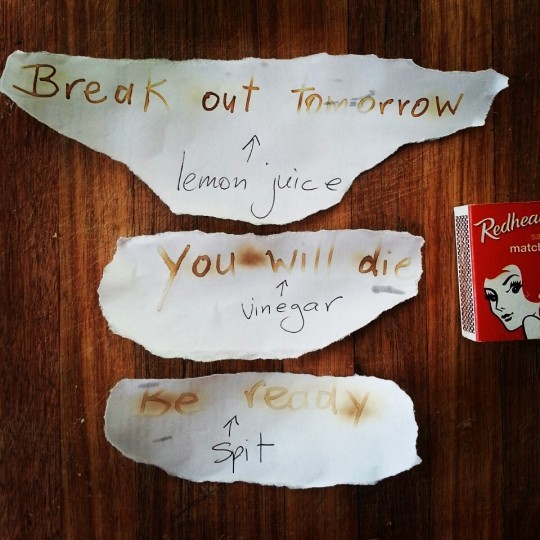 Break out Tomorrow
lemon juice
You will die
vinegar
Be ready
spit
Redhea
match